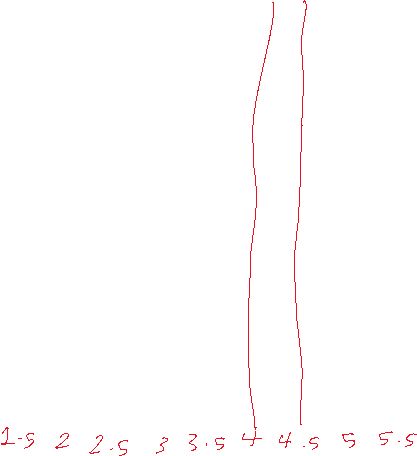 1.5 2 2.5 3 3.5 4 4.5 5 5.5